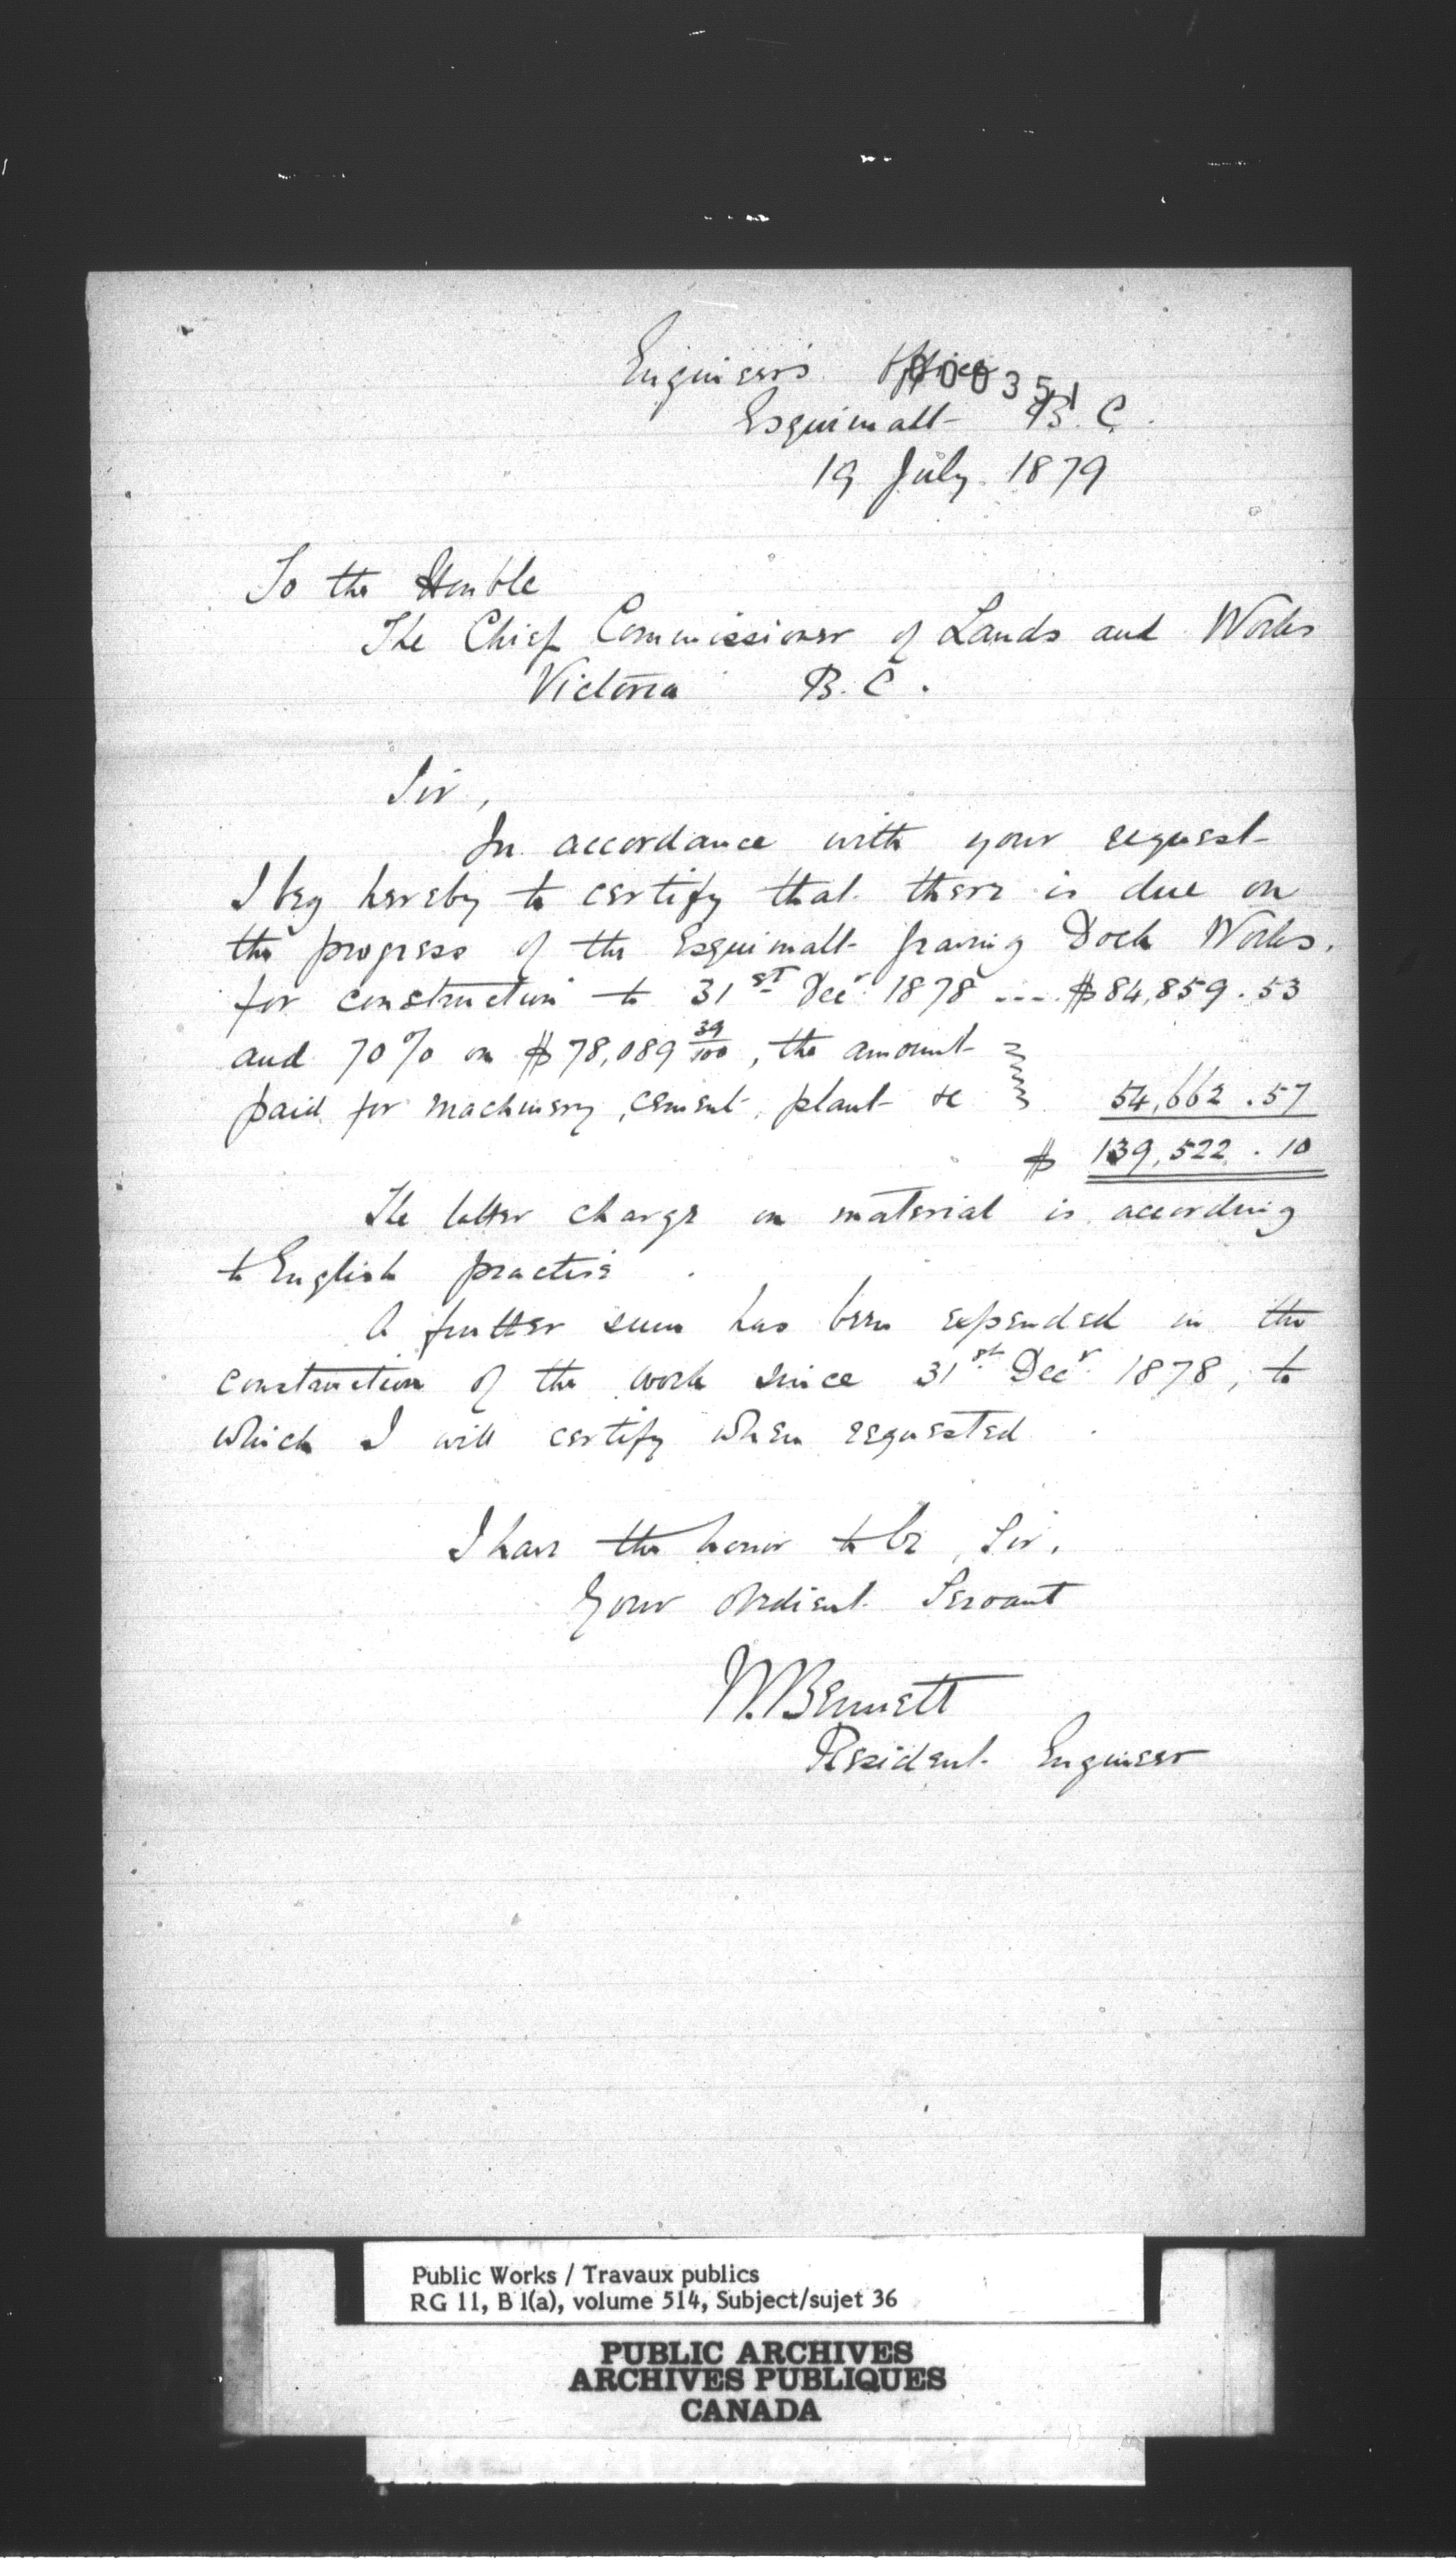 Engineers Office
000351
Esquimalt B.C.
19 July. 1879
To the Honble
The Chief Commissioner of Lands and Works
Victoria B.C.
Sir,
In accordance with your request
I beg hereby to certify that there is due on
the progress of the Esquimalt Graving Dock Works.
for construction to 31st Decr 1878 .... $84,859.53
and 70% on $78,089 39/100, the amount
paid for machinery, cement, plant &c 54,662.57
$ 139,522.10
The latter charge on material is according
to English practise.
A further sum has been expended in the
construction of the work since 31st Decr 1878, to
which I will certify when requested.
I have the honor to be, Sir,
Your obedient Servant
W. Bennett
Resident Engineer
Public Works / Travaux publics
RG 11, B 1(a), volume 514, Subject/sujet 36
PUBLIC ARCHIVES
ARCHIVES PUBLIQUES
CANADA